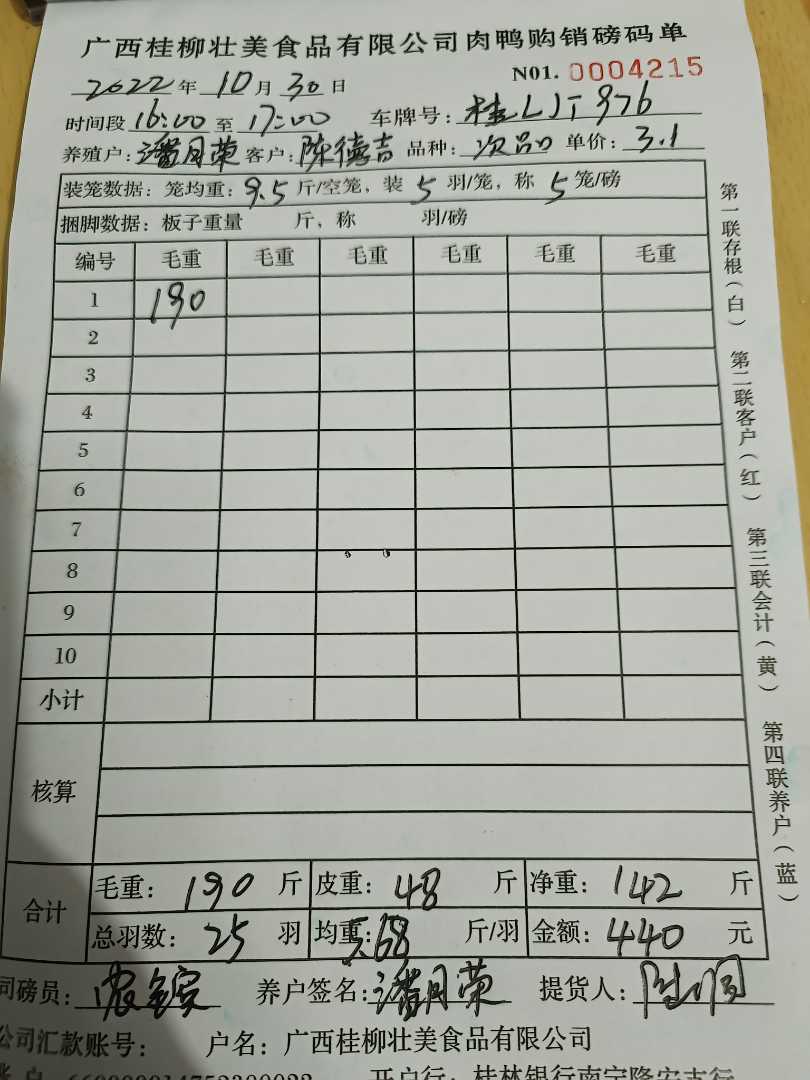 广西桂柳壮美食品有限公司肉鸭购销磅码单
2022年10月30日 N01. 0004215
时间段16:00至17:00 车牌号:桂LJT976
养殖户:潘月荣 客户:陈德吉 品种:次品 单价:3.1
装笼数据:笼均重:9.5斤/空笼,装5羽/笼,称5笼/磅
捆脚数据:板子重量 斤,称 羽/磅
编号 毛重 毛重 毛重 毛重 毛重 毛重
1 190
2
3
4
5
6
7
8
9
10
小计
核算
合计 毛重:190斤 皮重:48斤 净重:142斤
总羽数:25羽 均重:5.68斤/羽 金额:440元
司磅员: 养户签名:潘月荣 提货人:
公司汇款账号: 户名:广西桂柳壮美食品有限公司
开户行:桂林银行南宁隆安支行
第一联存根(白) 第二联客户(红) 第三联会计(黄) 第四联养户(蓝)